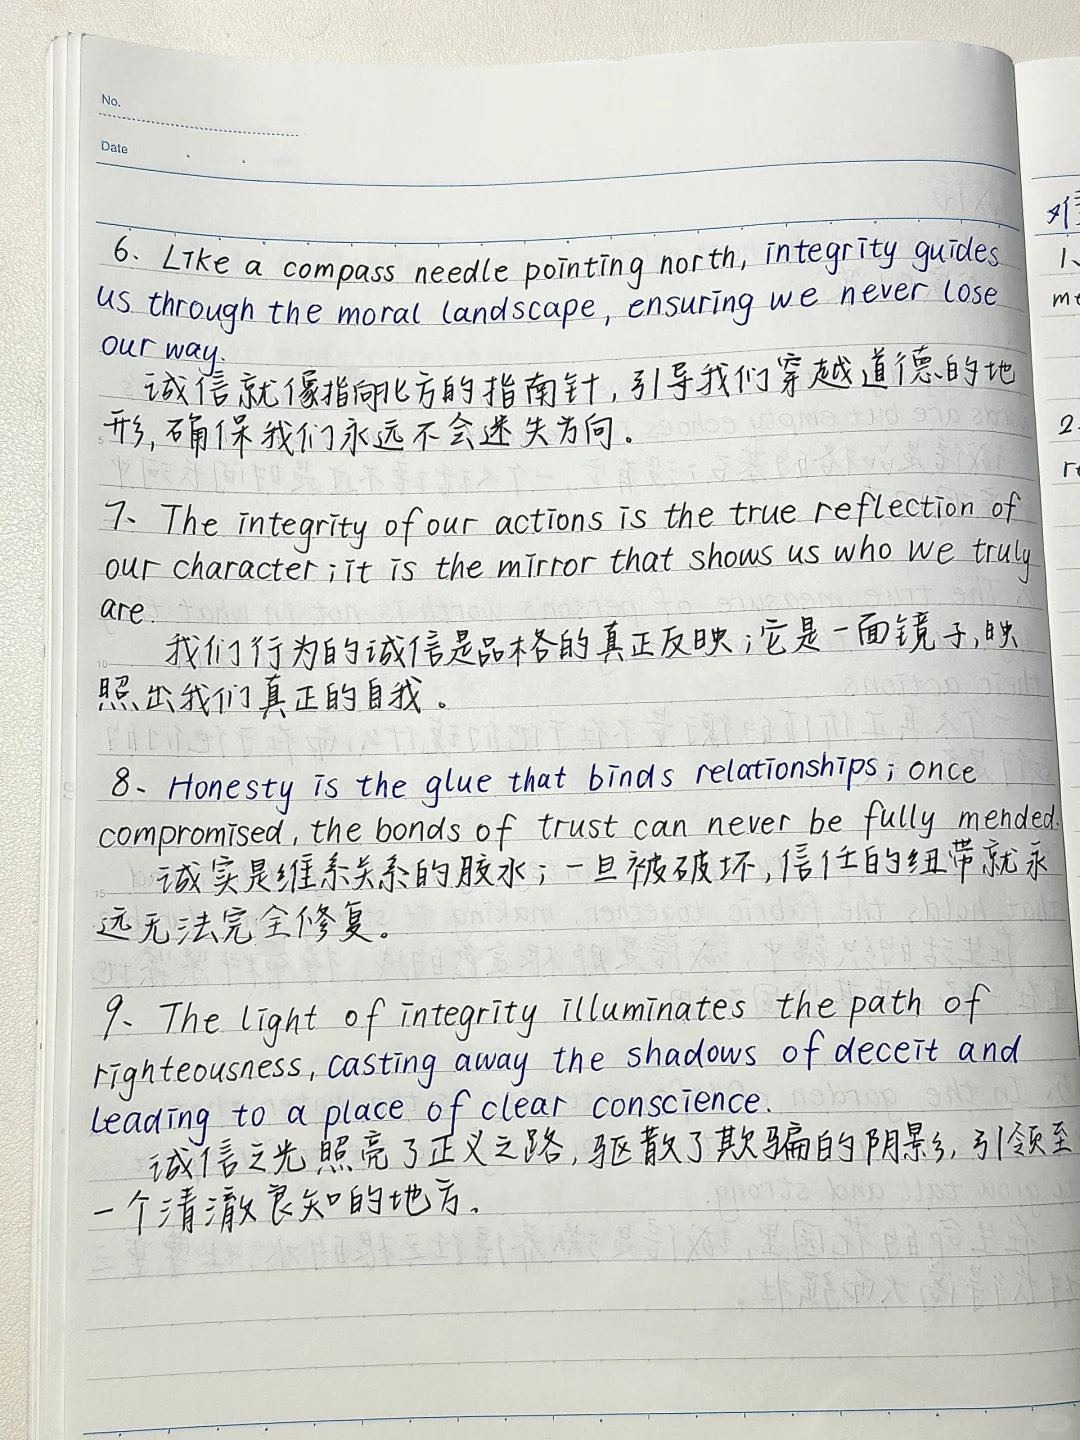 No.
Date
6、Like a compass needle pointing north, integrity guides
us through the moral landscape, ensuring we never lose
our way.
诚信就像指向北方的指南针,引导我们穿越道德的地
形,确保我们永远不会迷失方向。
7、The integrity of our actions is the true reflection of
our character;it is the mirror that shows us who we truly
are.
我们行为的诚信是品格的真正反映;它是一面镜子,映
照出我们真正的自我。
8、Honesty is the glue that binds relationships; once
compromised, the bonds of trust can never be fully mended.
诚实是维系关系的胶水;一旦被破坏,信任的纽带就永
远无法完全修复。
9、The light of integrity illuminates the path of
righteousness, casting away the shadows of deceit and
leading to a place of clear conscience.
诚信之光照亮了正义之路,驱散了欺骗的阴影,引领至
一个清澈良知的地方.
1、
2.